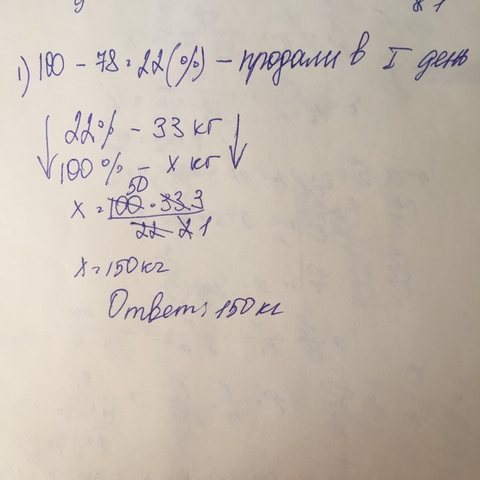 1) 100 - 78 = 22 (%) - продали в I день
22% - 33 кг
100% - x кг
50
x = 100 · 33 3
22 2 1
x = 150 кг
Ответ: 150 кг